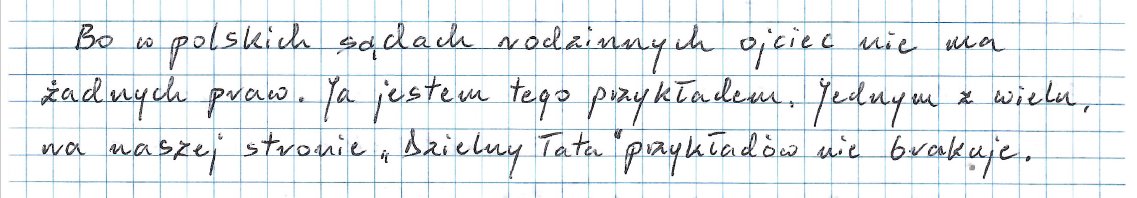 Bo w polskich sądach rodzinnych ojciec nie ma
żadnych praw. Ja jestem tego przykładem. Jednym z wielu,
na naszej stronie „Dzielny Tata" przykładów nie brakuje.